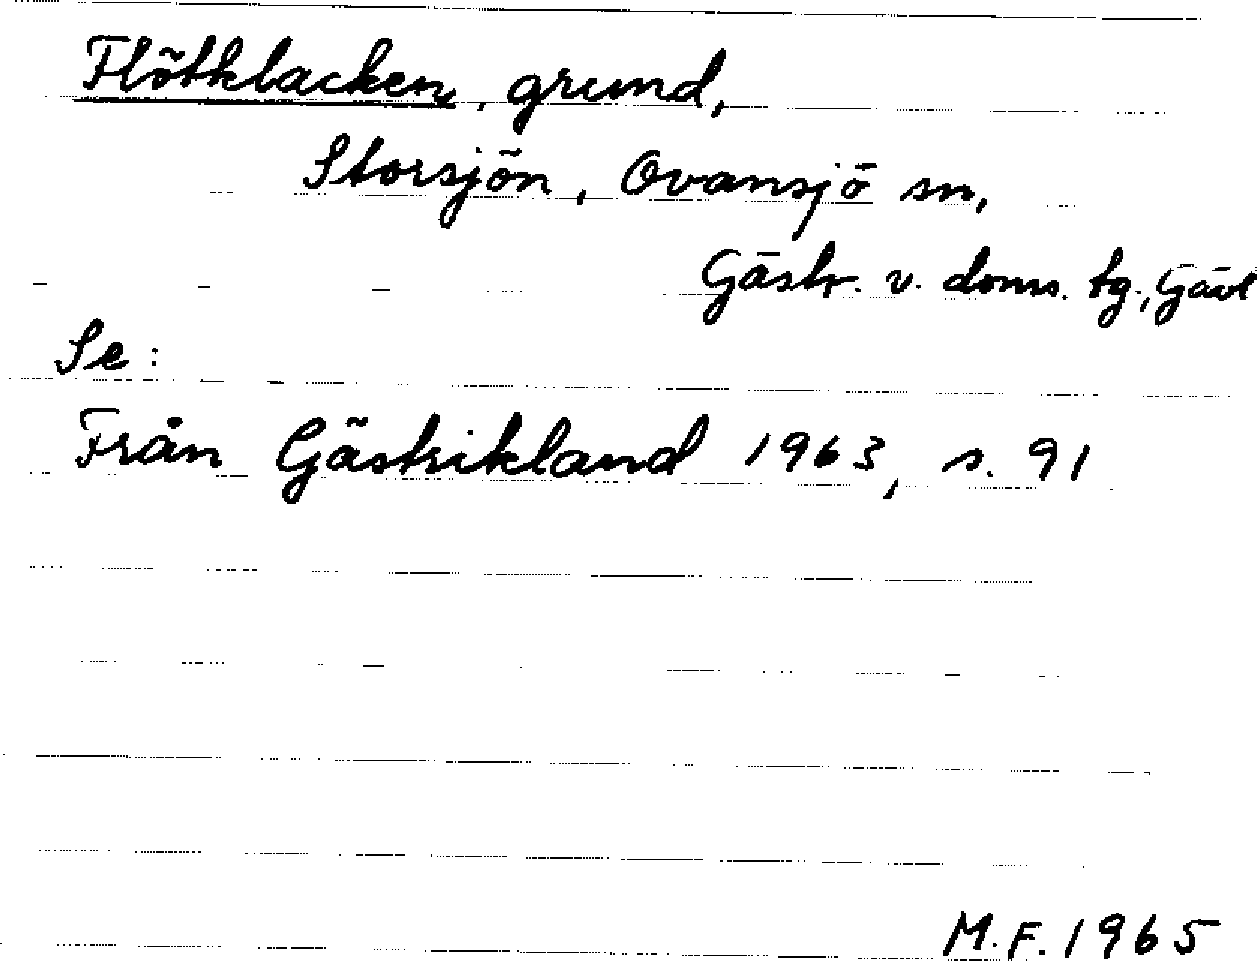 Flötklacken, grund,
Storsjön, Ovansjö sn,
Gästr. v. doms. tg., Gävl
Se:
Från Gästrikland 1963, s. 91
M.F. 1965